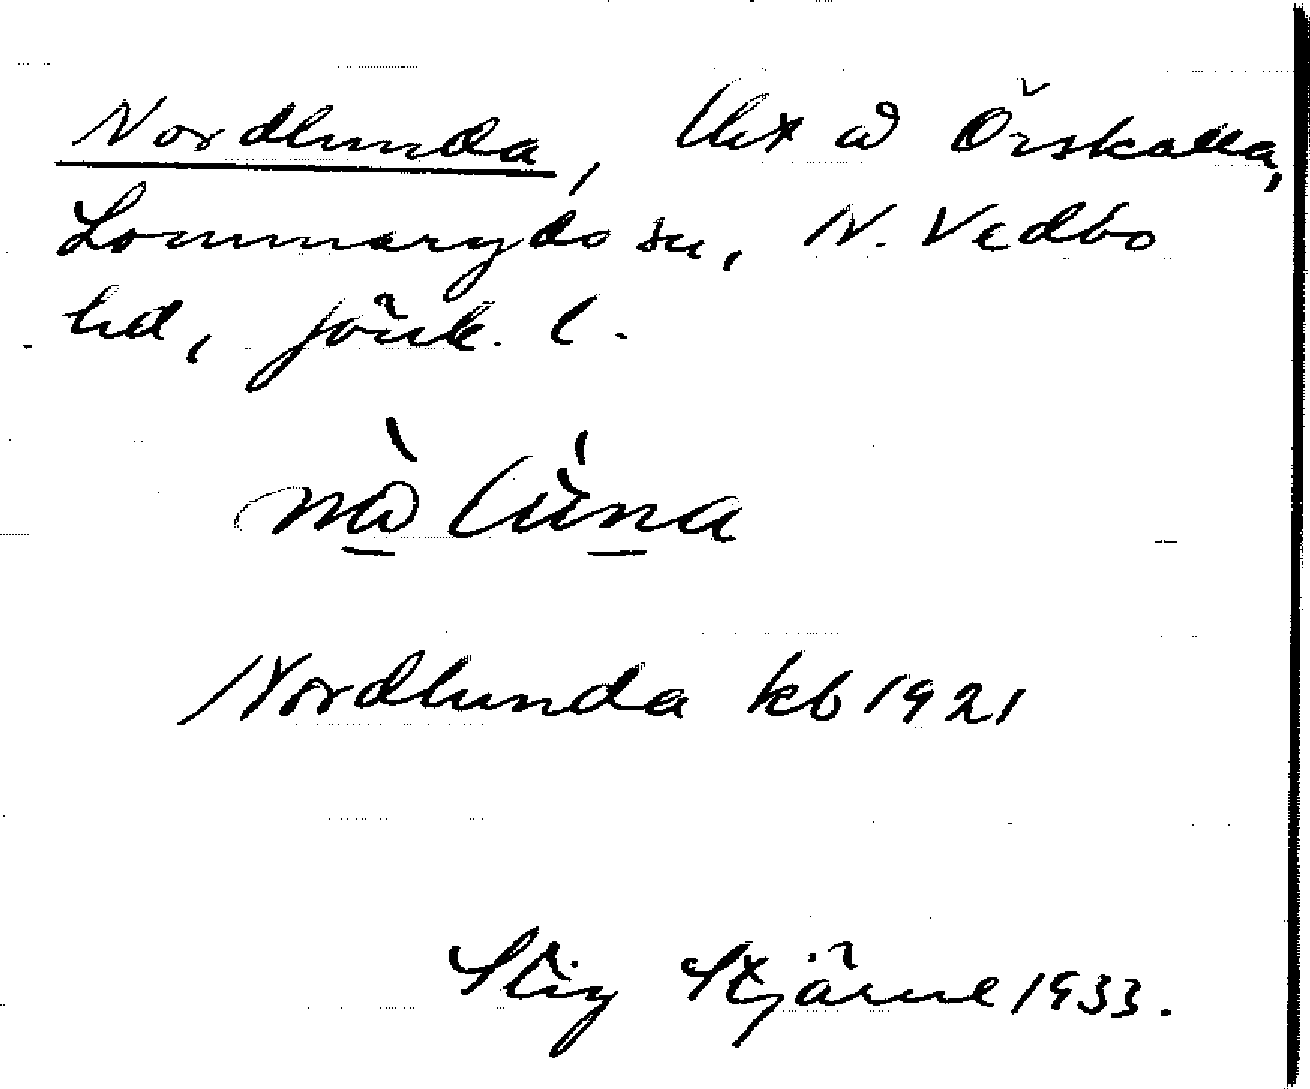 Nordlunda, Ut å Örskalla,
Lommaryds sn, N. Vedbo
hd, Jönk. l.
Nordlunda kb 1921
Stig Stjärne 1933.